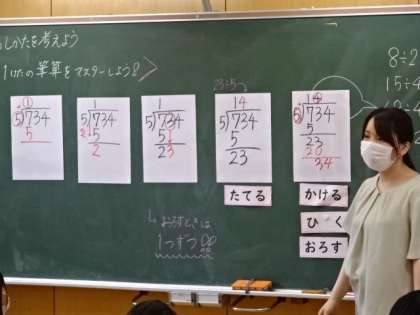 しかたを考えよう
1けたの筆算をマスターしよう!
8÷2
15÷
①
5)734
5
1
5)734
5
2
1
5)734
5
23
23÷5
14
5)734
5
23
14
5)734
5
23
20
34
たてる
かける
ひく
おろす
おろすときは
1つずつ